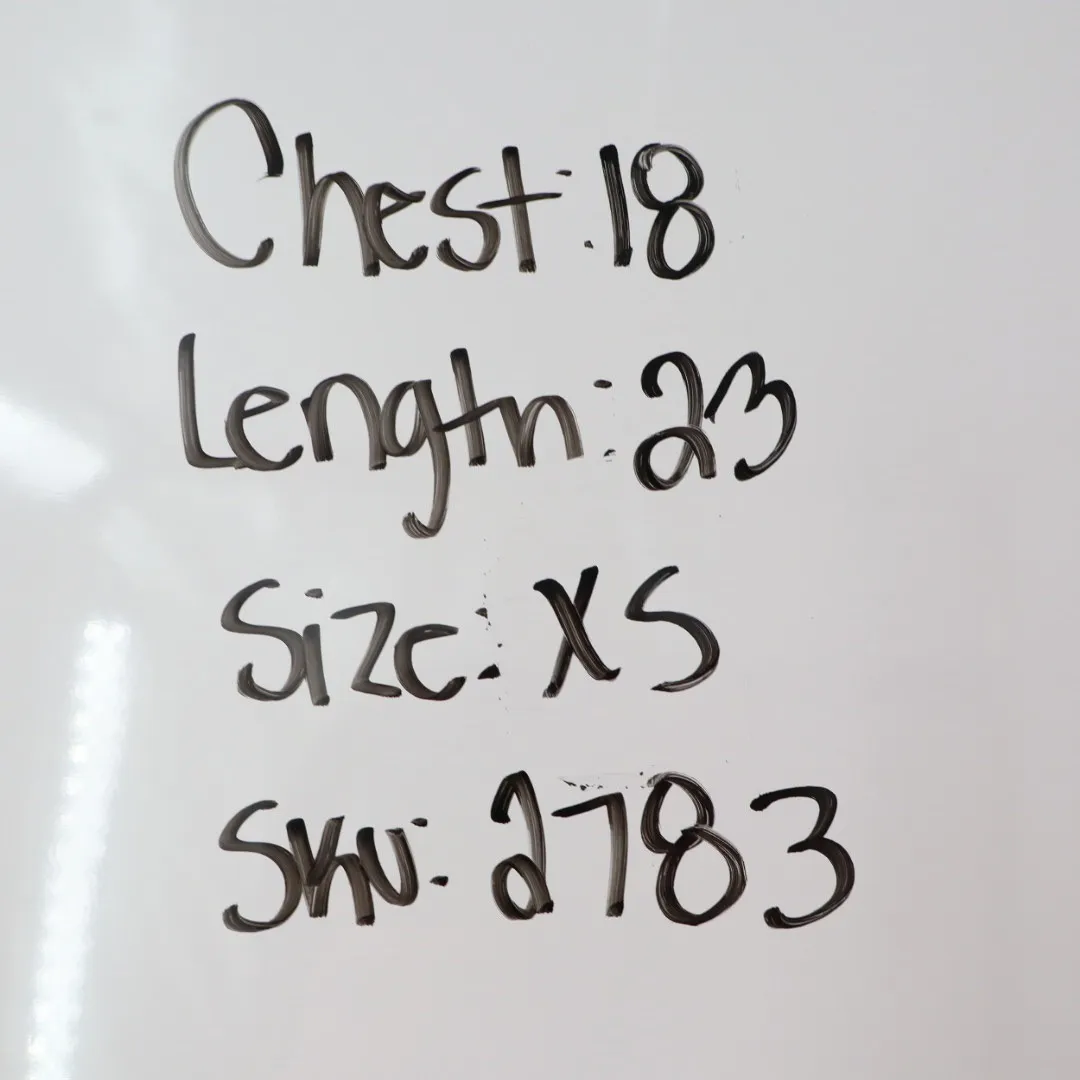 Chest: 18
Length: 23
Size: XS
Sku: 2783